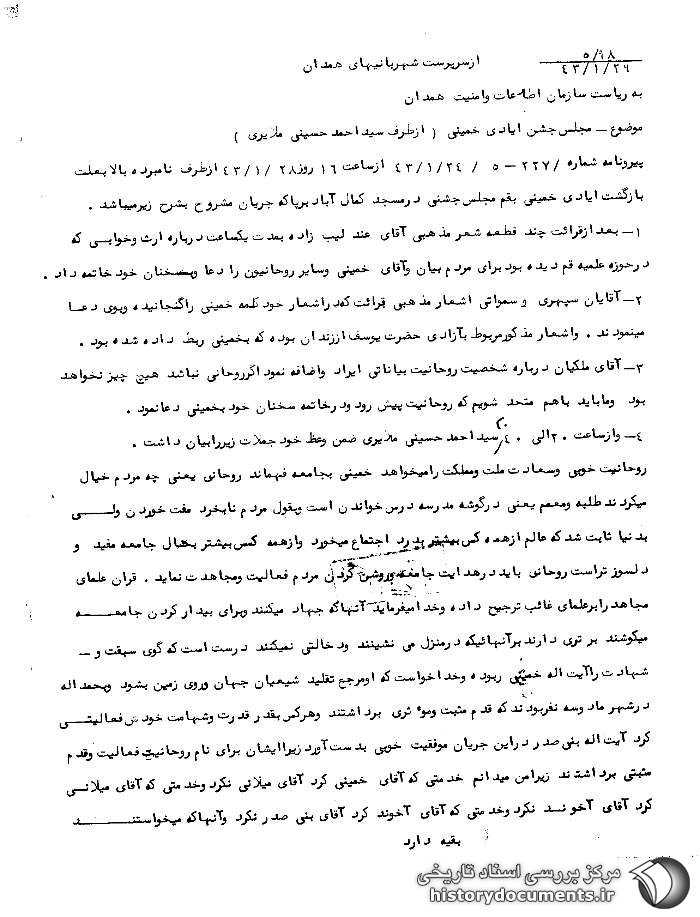 ۵/۹۸
۴۳/۱/۲۹
از سرپرست شهربانیهای همدان
به ریاست سازمان اطلاعات وامنیت همدان
موضوع – مجلس جشن ایادی خمینی ( ازطرف سید احمد حسینی ملایری )
پیرونامه شماره /۲۲۷ – ۵ / ۴۳/۱/۲۴ ازساعت ۱۶ روز ۴۳/۱/۲۸ ازطرف نامبرده بالا بعلت
بازگشت ایادی خمینی بقم مجلس جشنی درمسجد کمال آباد برپاکه جریان مشروح بشرح زیرمیباشد .
۱– بعد ازقرائت چند قطعه شعر مذهبی آقای عند لیب زاده بمدت یکساعت درباره ارث وخوابی که
درحوزه علمیه قم دیده بود برای مردم بیان وآقای خمینی وسایر روحانیون را دعا وبسخنان خود خاتمه داد .
۲– آقایان سپهری و سمواتی اشعار مذهبی قرائت که در اشعار خود کلمه خمینی راگنجانیده وبوی دعا
مینمودند . واشعار مذکورمربوط بآزادی حضرت یوسف اززندان بوده که بخمینی ربط داده شده بود .
۳– آقای ملکیان درباره شخصیت روحانیت بیاناتی ایراد واضافه نمود اگرروحانی نباشد هیچ چیز نخواهد
بود وماباید باهم متحد شویم که روحانیت پیش رود ودرخاتمه سخنان خود بخمینی دعانمود .
۴– وازساعت ۲۰ الی سید احمد حسینی ملایری ضمن وعظ خود جملات زیررابیان داشت .
روحانیت خوبی وسعادت ملت ومملکت رامیخواهد خمینی بجامعه فهماند روحانی یعنی چه مردم خیال
میکردند طلبه ومعمم یعنی درگوشه مدرسه درس خواندن است وبقول مردم نابخرد مفت خوردن ولی
بدنیا ثابت شد که عالم ازهمه کس بیشتر بدرد اجتماع میخورد وازهمه کس بیشتر بحال جامعه مفید و
دلسوز تراست روحانی باید درهدایت جامعه وروشن کردن مردم فعالیت ومجاهدت نماید . قران علمای
مجاهد رابرعلمای غائب ترجیح داده وخدامیفرماید آنهاکه جهاد میکنند وبرای بیدار کردن جامعه
میکوشند برتری دارند برآنهائیکه درمنزل می نشینند ودخالتی نمیکنند درست است که گوی سبقت و –
شهادت راآیت اله خمینی ربوده وخداخواست که اومرجع تقلید شیعیان جهان وروی زمین بشود وبحمداله
درشهر مادوسه نفربودند که قدم مثبت وموثری برداشتند وهرکس بقدر قدرت وشهامت خودش فعالیتی
کرد آیت اله بنی صدر دراین جریان موفقیت خوبی بدست آورد زیراایشان برای نام روحانیت فعالیت وقدم
مثبتی برداشتند زیرامن میدانم خدمتی که آقای خمینی کرد آقای میلانی نکرد وخدمتی که آقای میلانی
کرد آقای آخوند نکرد وخدمتی که آقای آخوند کرد آقای بنی صدر نکرد وآنهاکه میخواستند
بقیه دارد
مرکز بررسی اسناد تاریخی
historydocuments.ir